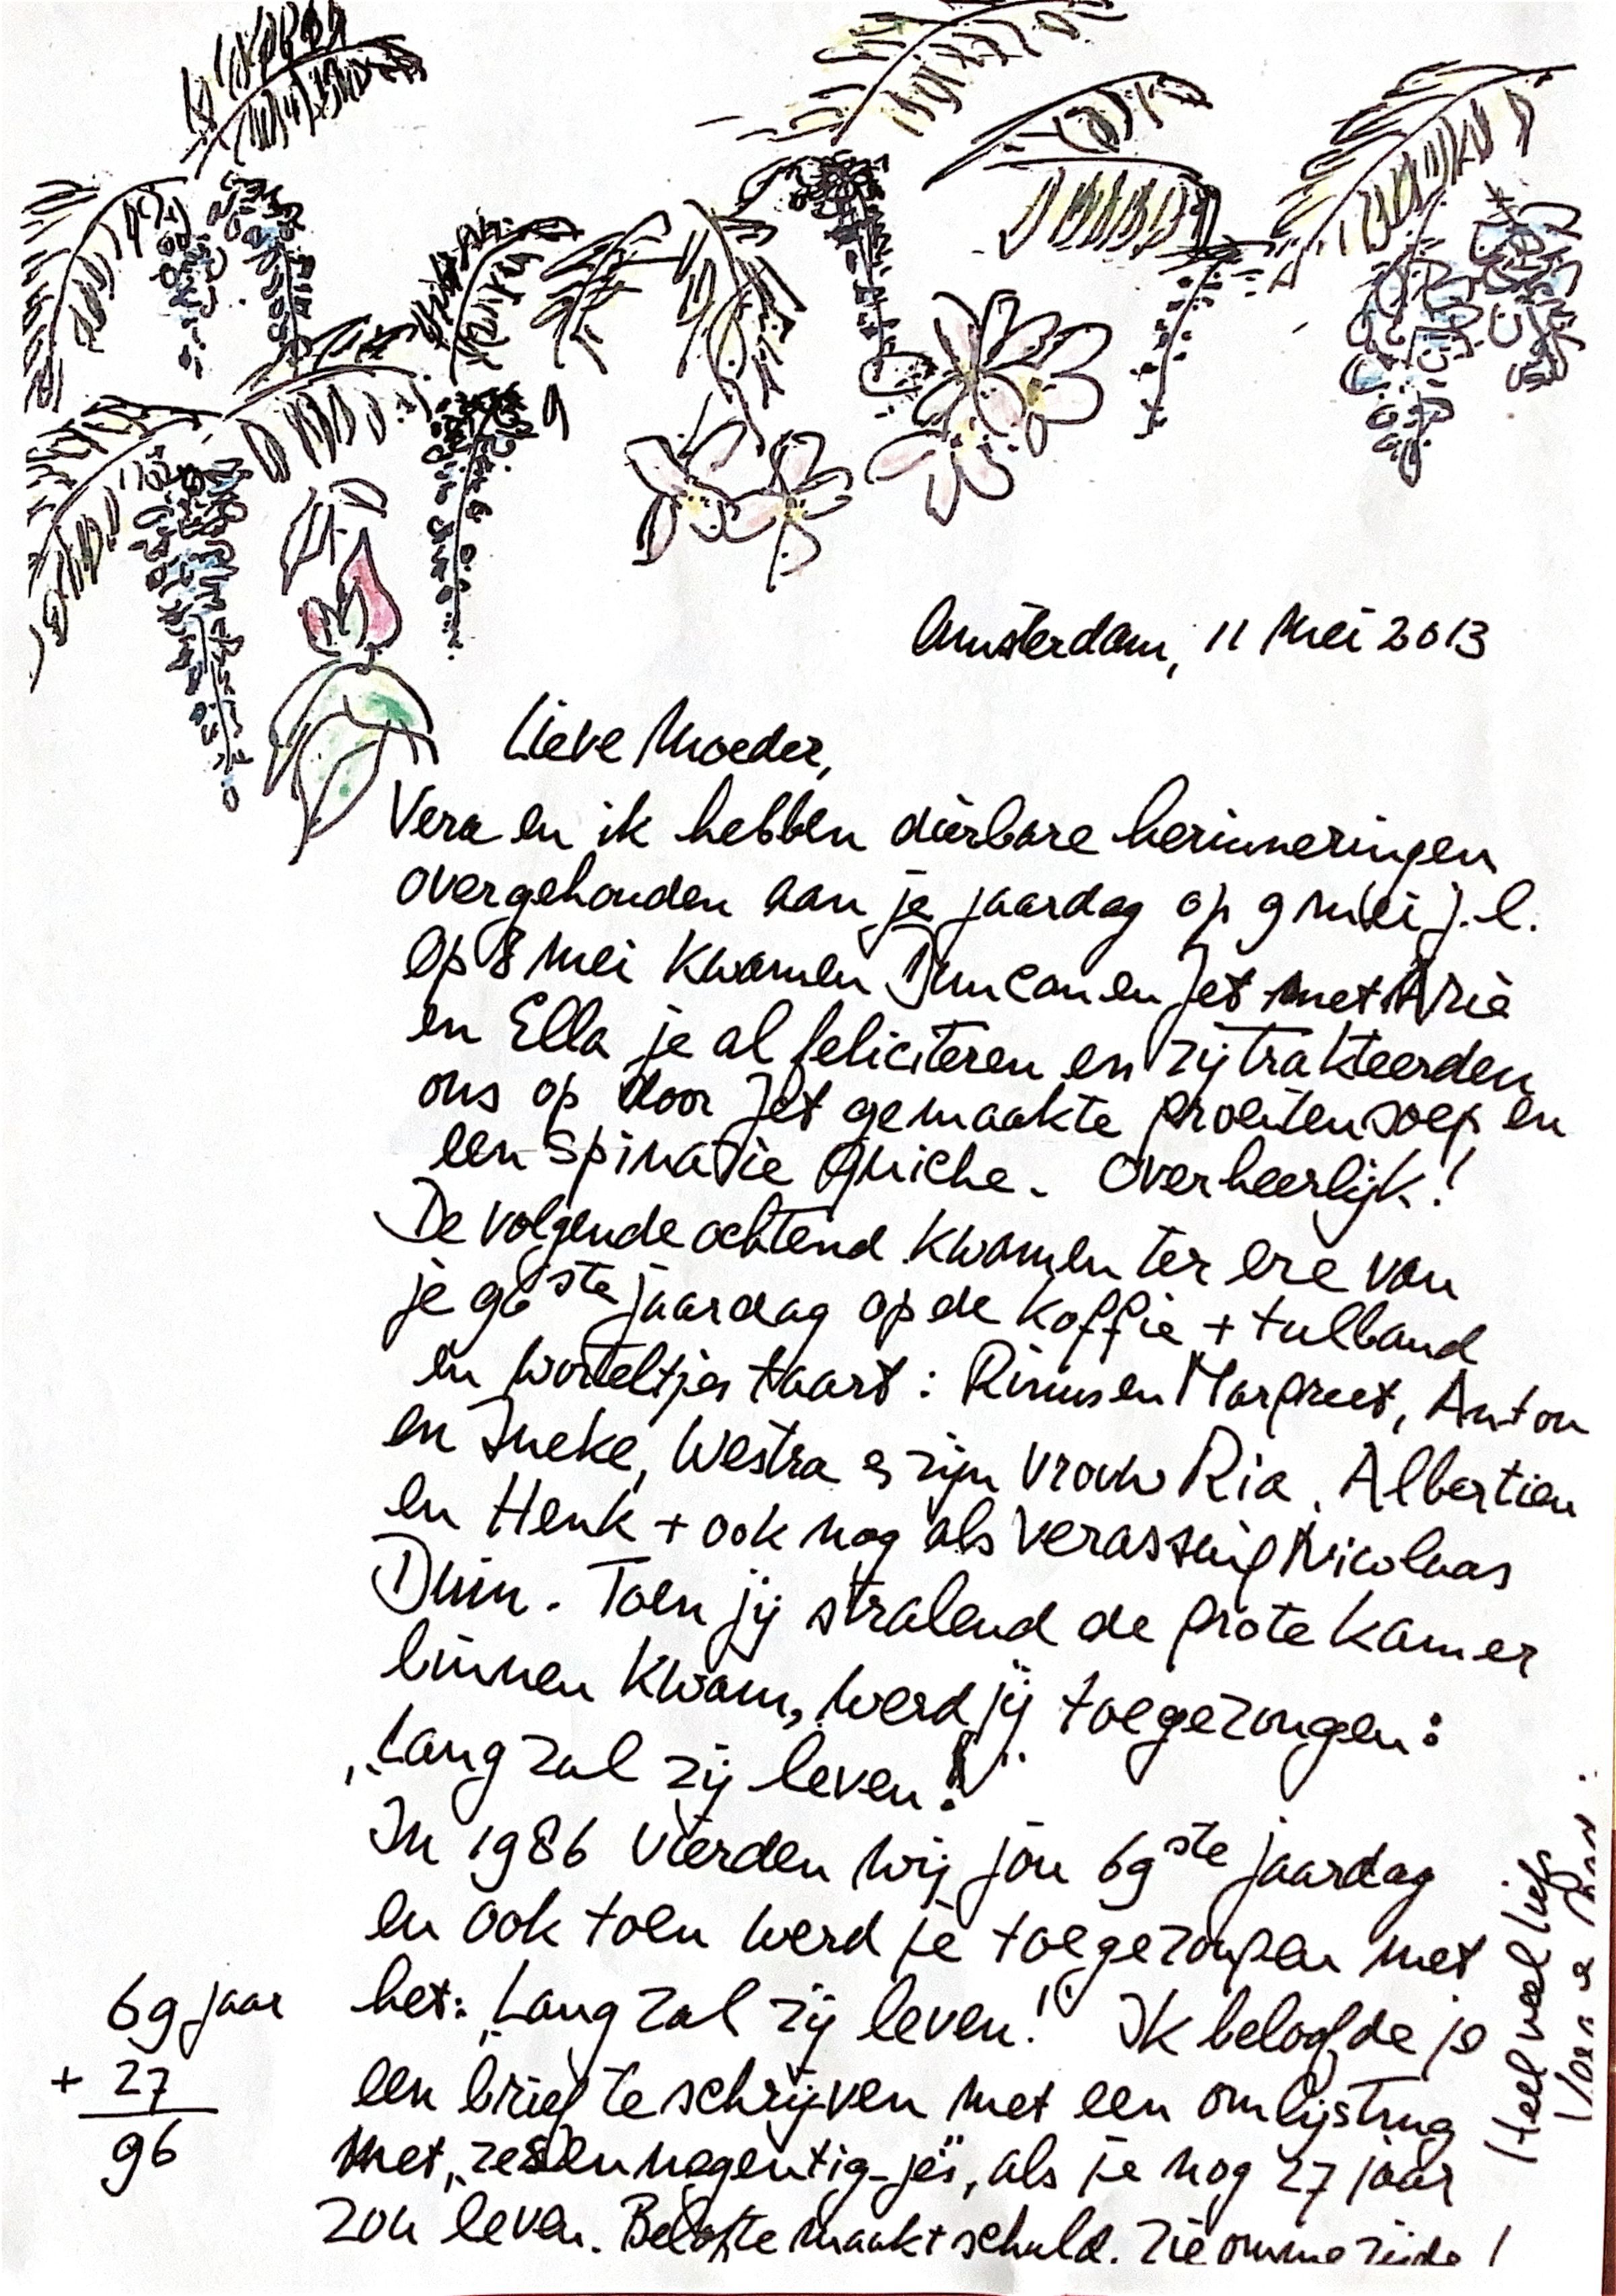 Amsterdam, 11 Mei 2013
Lieve Moeder,
Vera en ik hebben dierbare herinneringen
overgehouden aan je jaardag op 9 mei j.l.
Op 8 mei kwamen Duncan en Jet met Arie
en Ella je al feliciteren en zij trakteerden
ons op door Jet gemaakte proeitensoep en
een spinatie quiche. Overheerlijk!
De volgende ochtend kwamen ter ere van
je 96ste jaardag op de koffie + tulband
en worteltjes taart: Rinus en Margreet, Anton
en Ineke, Westra & zijn vrouw Ria, Albertien
en Henk + ook nog als verassing Nicolaas
Duin. Toen jij stralend de grote kamer
binnen kwam, werd jij toegezongen:
„Lang zal zij leven!"
In 1986 vierden wij jou 69ste jaardag
en ook toen werd je toegezongen met
het: „Lang zal zij leven!" Ik beloofde je
een brief te schrijven met een omlijsting
met „zesennegentig-jes", als je nog 27 jaar
zou leven. Belofte maakt schuld. Zie ommezijde!
69 jaar
+ 27
96
Heel veel liefs